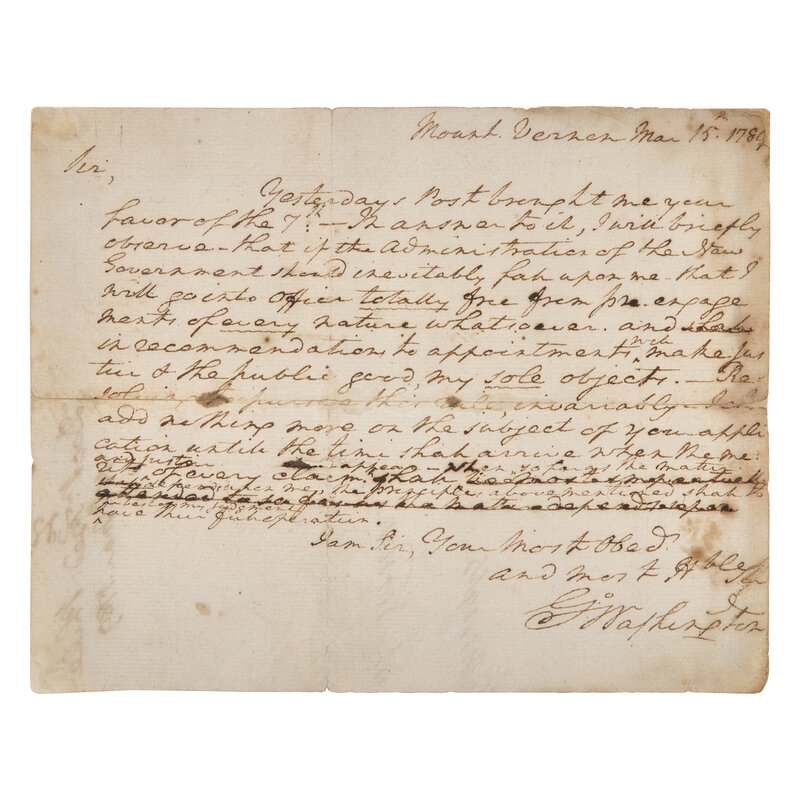 Mount Vernon Mar 15th 1789
Sir,
Yesterdays Post brought me your
favor of the 7th. – In answer to it, I will briefly
observe – that if the Administration of the New
Government should inevitably fall upon me that I
will go into office totally free from pre-engage
ments of every nature whatsoever. and
in recommendations to appointments will make Jus
tice & the public good, my sole objects. – Re
solving to pursue this rule, invariably – I
add nothing more on the subject of your appli
cation until the time shall arrive when the me
rits and justice of every claim shall appear – when, so far as the matter
depends upon me, the principles above mentioned shall to
the best of my judgment
have their full operation.
I am Sir, Your Most Obedt
and most Hble Ser
Go Washington